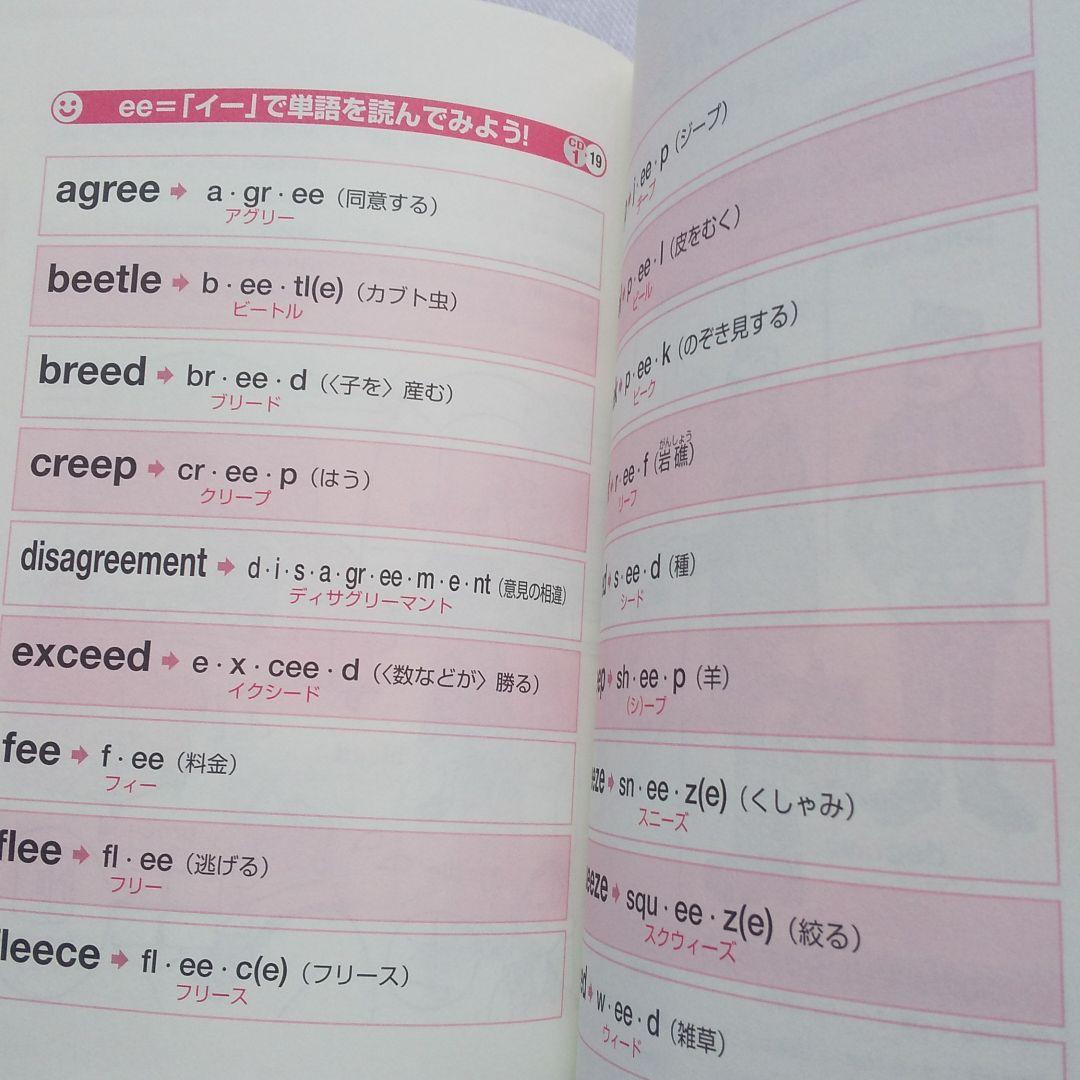 ee=「イー」で単語を読んでみよう!
CD
1 19
agree ➡ a・gr・ee (同意する)
アグリー
beetle ➡ b・ee・tl(e) (カブト虫)
ビートル
breed ➡ br・ee・d (〈子を〉産む)
ブリード
creep ➡ cr・ee・p (はう)
クリープ
disagreement ➡ d・i・s・a・gr・ee・m・e・nt (意見の相違)
ディサグリーマント
exceed ➡ e・x・cee・d (〈数などが〉勝る)
イクシード
fee ➡ f・ee (料金)
フィー
flee ➡ fl・ee (逃げる)
フリー
fleece ➡ fl・ee・c(e) (フリース)
フリース
j・ee・p (ジープ)
p・ee・l (皮をむく)
ピール
k ➡ p・ee・k (のぞき見する)
ピーク
f ➡ r・ee・f (岩礁)
がんしょう
リーフ
d ➡ s・ee・d (種)
シード
ep ➡ sh・ee・p (羊)
(シ)ープ
eze ➡ sn・ee・z(e) (くしゃみ)
スニーズ
eeze ➡ squ・ee・z(e) (絞る)
スクウィーズ
ed ➡ w・ee・d (雑草)
ウィード